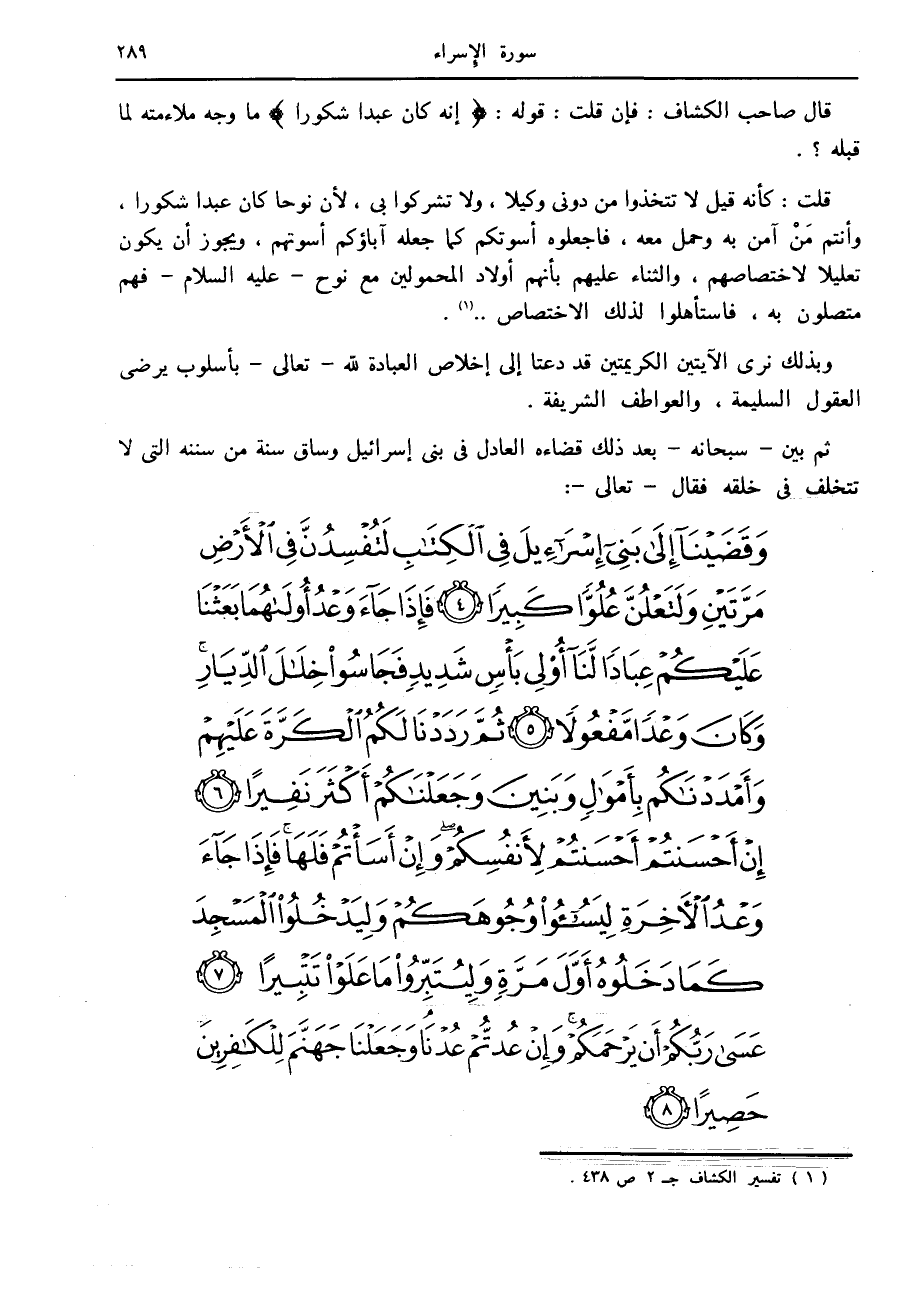 سورة الإسراء ٢٨٩
قال صاحب الكشاف : فإن قلت : قوله : ﴿ إنه كان عبدا شكورا ﴾ ما وجه ملاءمته لما
قبله ؟ .
قلت : كأنه قيل لا تتخذوا من دونى وكيلا ، ولا تشركوا بى ، لأن نوحا كان عبدا شكورا ،
وأنتم مَنْ آمن به وحمل معه ، فاجعلوه أسوتكم كما جعله آباؤكم أسوتهم ، ويجوز أن يكون
تعليلا لاختصاصهم ، والثناء عليهم بأنهم أولاد المحمولين مع نوح – عليه السلام – فهم
متصلون به ، فاستأهلوا لذلك الاختصاص ..(١) .
وبذلك نرى الآيتين الكريمتين قد دعتا إلى إخلاص العبادة لله – تعالى – بأسلوب يرضى
العقول السليمة ، والعواطف الشريفة .
ثم بين – سبحانه – بعد ذلك قضاءه العادل فى بنى إسرائيل وساق سنة من سننه التى لا
تتخلف فى خلقه فقال – تعالى –:
وَقَضَيْنَآ إِلَىٰ بَنِىٓ إِسْرَٰٓءِيلَ فِى ٱلْكِتَٰبِ لَتُفْسِدُنَّ فِى ٱلْأَرْضِ
مَرَّتَيْنِ وَلَتَعْلُنَّ عُلُوًّا كَبِيرًا ٤ فَإِذَا جَآءَ وَعْدُ أُولَىٰهُمَا بَعَثْنَا
عَلَيْكُمْ عِبَادًا لَّنَآ أُو۟لِى بَأْسٍ شَدِيدٍ فَجَاسُوا۟ خِلَٰلَ ٱلدِّيَارِ ۚ
وَكَانَ وَعْدًا مَّفْعُولًا ٥ ثُمَّ رَدَدْنَا لَكُمُ ٱلْكَرَّةَ عَلَيْهِمْ
وَأَمْدَدْنَٰكُم بِأَمْوَٰلٍ وَبَنِينَ وَجَعَلْنَٰكُمْ أَكْثَرَ نَفِيرًا ٦
إِنْ أَحْسَنتُمْ أَحْسَنتُمْ لِأَنفُسِكُمْ ۖ وَإِنْ أَسَأْتُمْ فَلَهَا ۚ فَإِذَا جَآءَ
وَعْدُ ٱلْءَاخِرَةِ لِيَسُـۥٓـُٔوا۟ وُجُوهَكُمْ وَلِيَدْخُلُوا۟ ٱلْمَسْجِدَ
كَمَا دَخَلُوهُ أَوَّلَ مَرَّةٍ وَلِيُتَبِّرُوا۟ مَا عَلَوْا۟ تَتْبِيرًا ٧
عَسَىٰ رَبُّكُمْ أَن يَرْحَمَكُمْ ۚ وَإِنْ عُدتُّمْ عُدْنَا ۘ وَجَعَلْنَا جَهَنَّمَ لِلْكَٰفِرِينَ
حَصِيرًا ٨
( ١ ) تفسير الكشاف جـ ٢ ص ٤٣٨ .